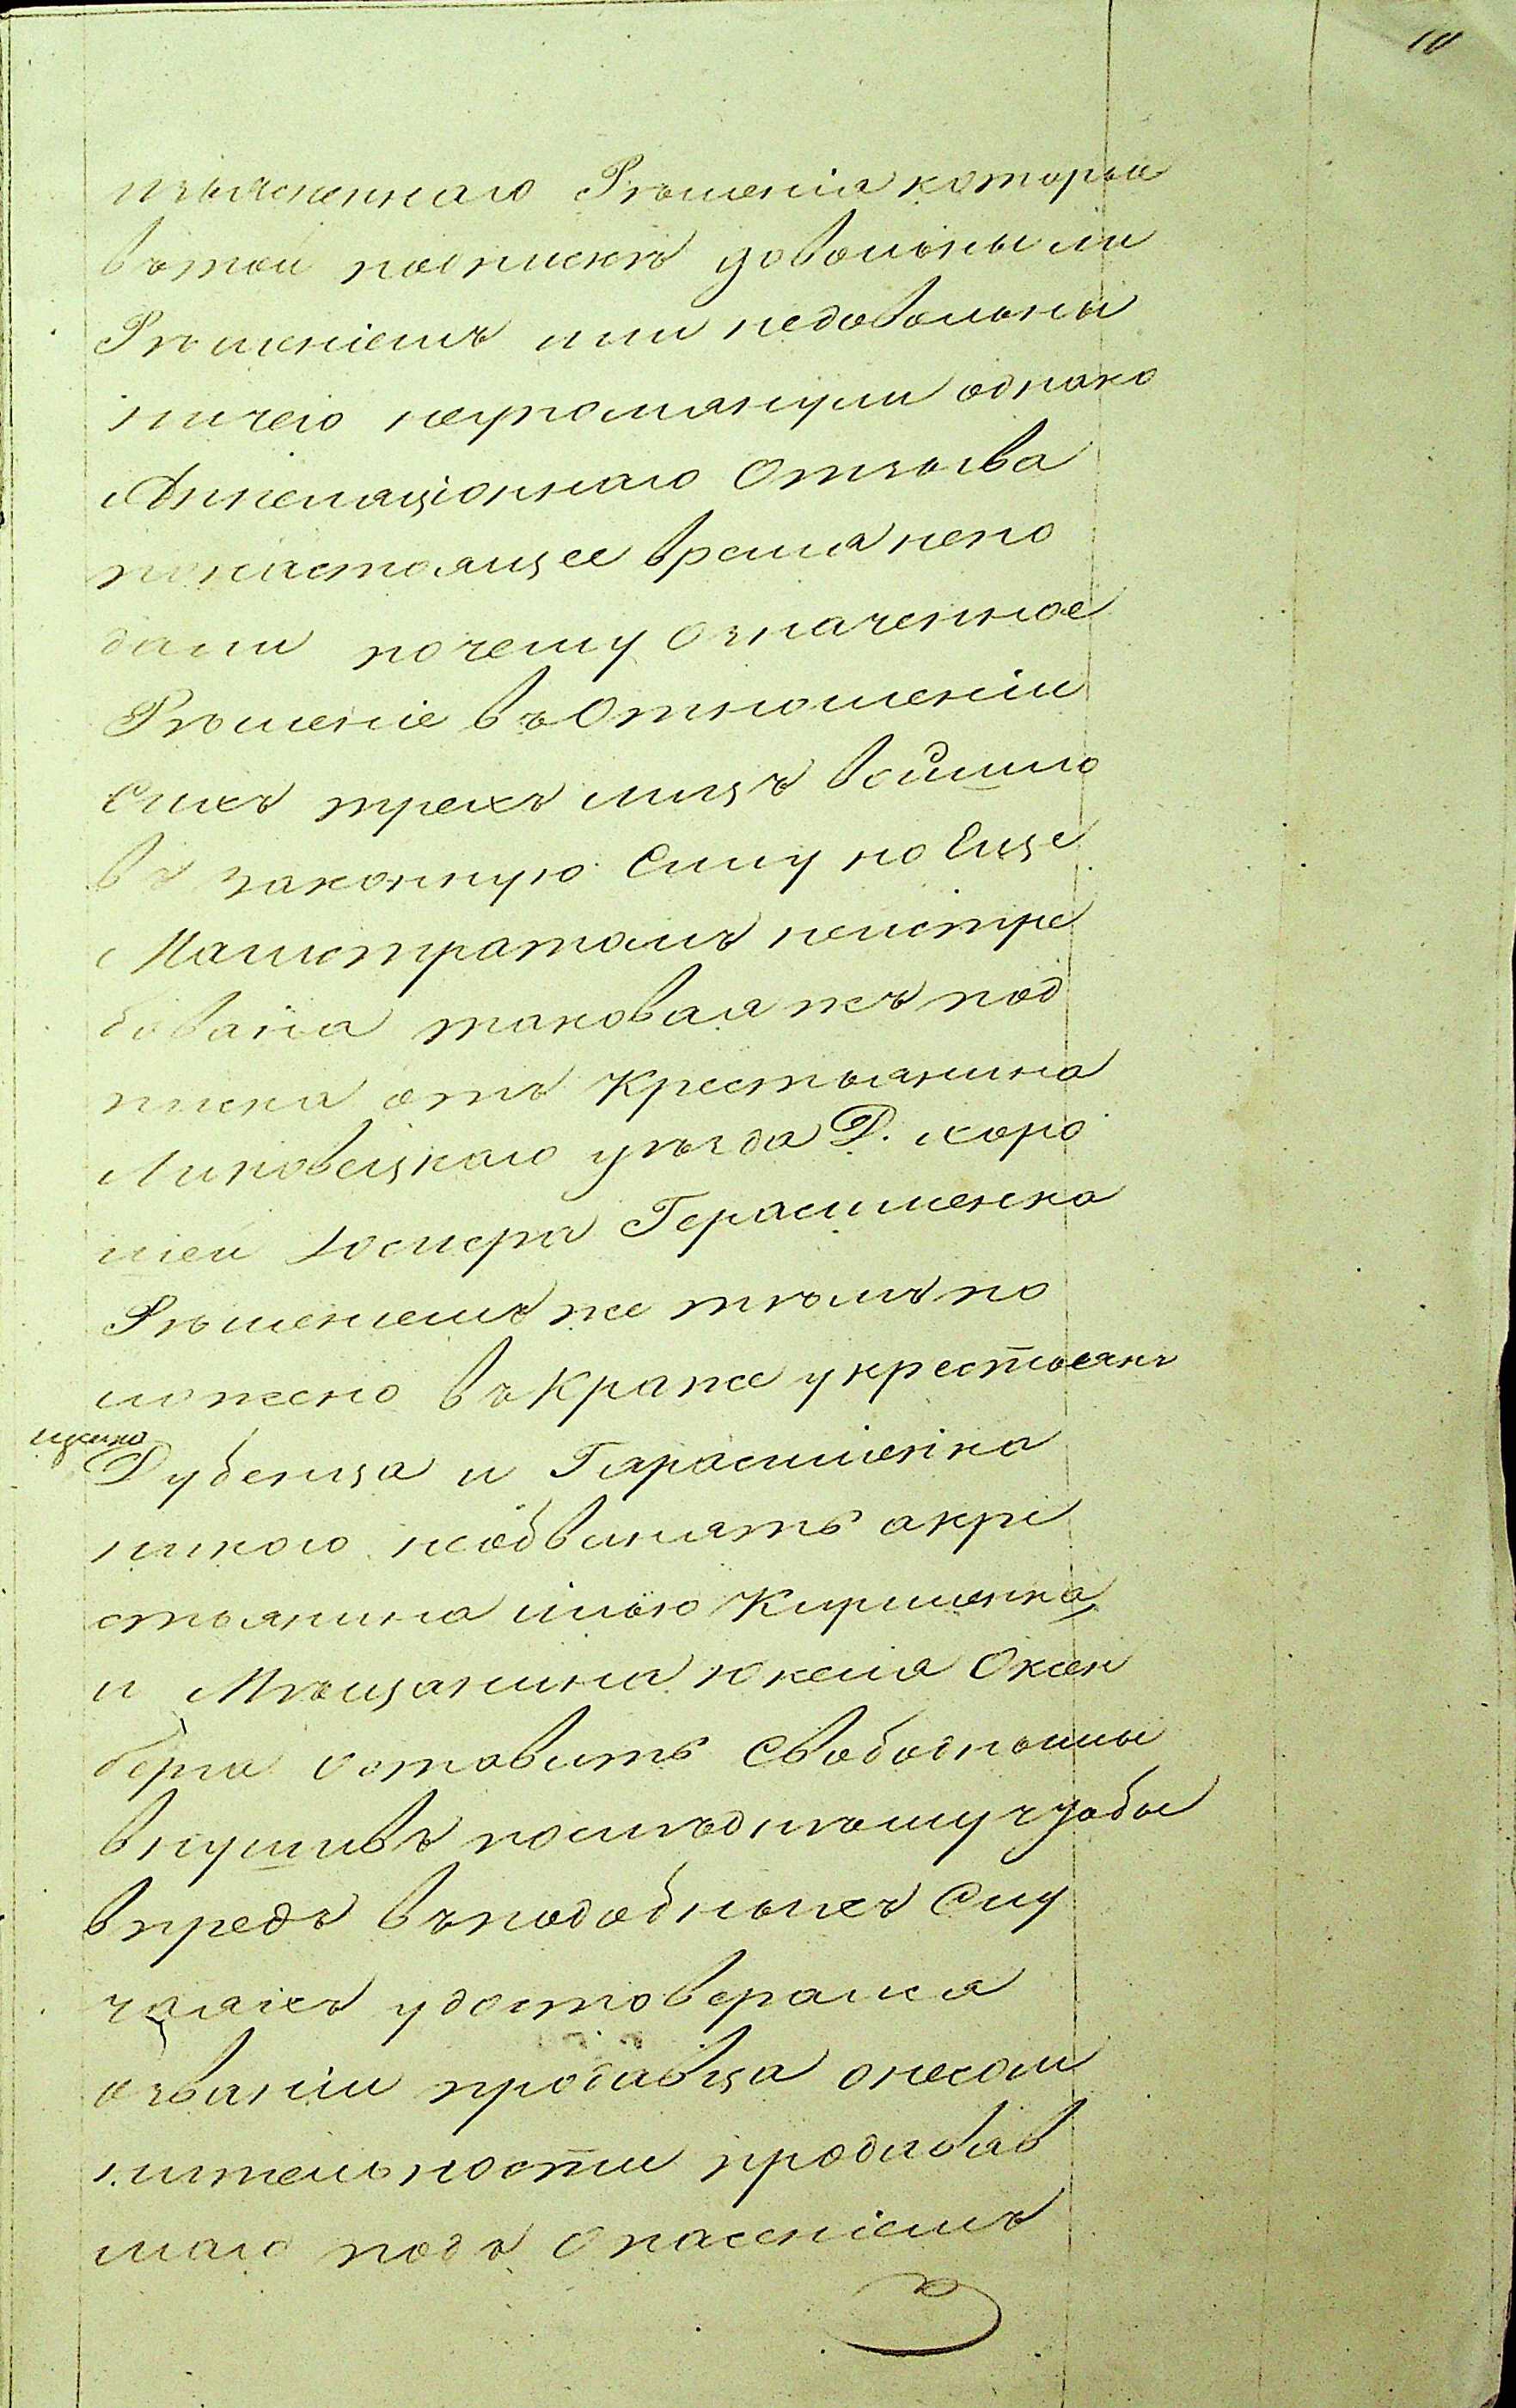 10
изъясненнаго Рѣшенія которые
въ той подпискѣ довольны ли
Рѣшеніемъ или недовольны
ничего неупомянули однако
Аппеляціоннаго Отзыва
понастоящее время непо
дали почему Означенное
Рѣшеніе въ Отношеніи
Сихъ трехъ лицъ войшло
въ законную Силу но Еще
Магистратомъ неистре
бована таковая жъ под
писка отъ Крестьянина
Липовецкаго уѣзда Д. хоро
шей Іосифа Герасименка
Рѣшениемъ же тѣмъ по
ложено въ Краже у крестьянъ
Дубенца и Гарасименка
никого необвинять а кре
стьянина илью Кириленка
и Мѣщанина Юкеля Оксен
берга оставить Свободными
внушивъ послѣднѣму чтобы
впредь въ подобныхъ Слу
чаяхъ удостоверался
озваніи продавца онесом
нительности продавав
шаго подъ Опасеніемъ